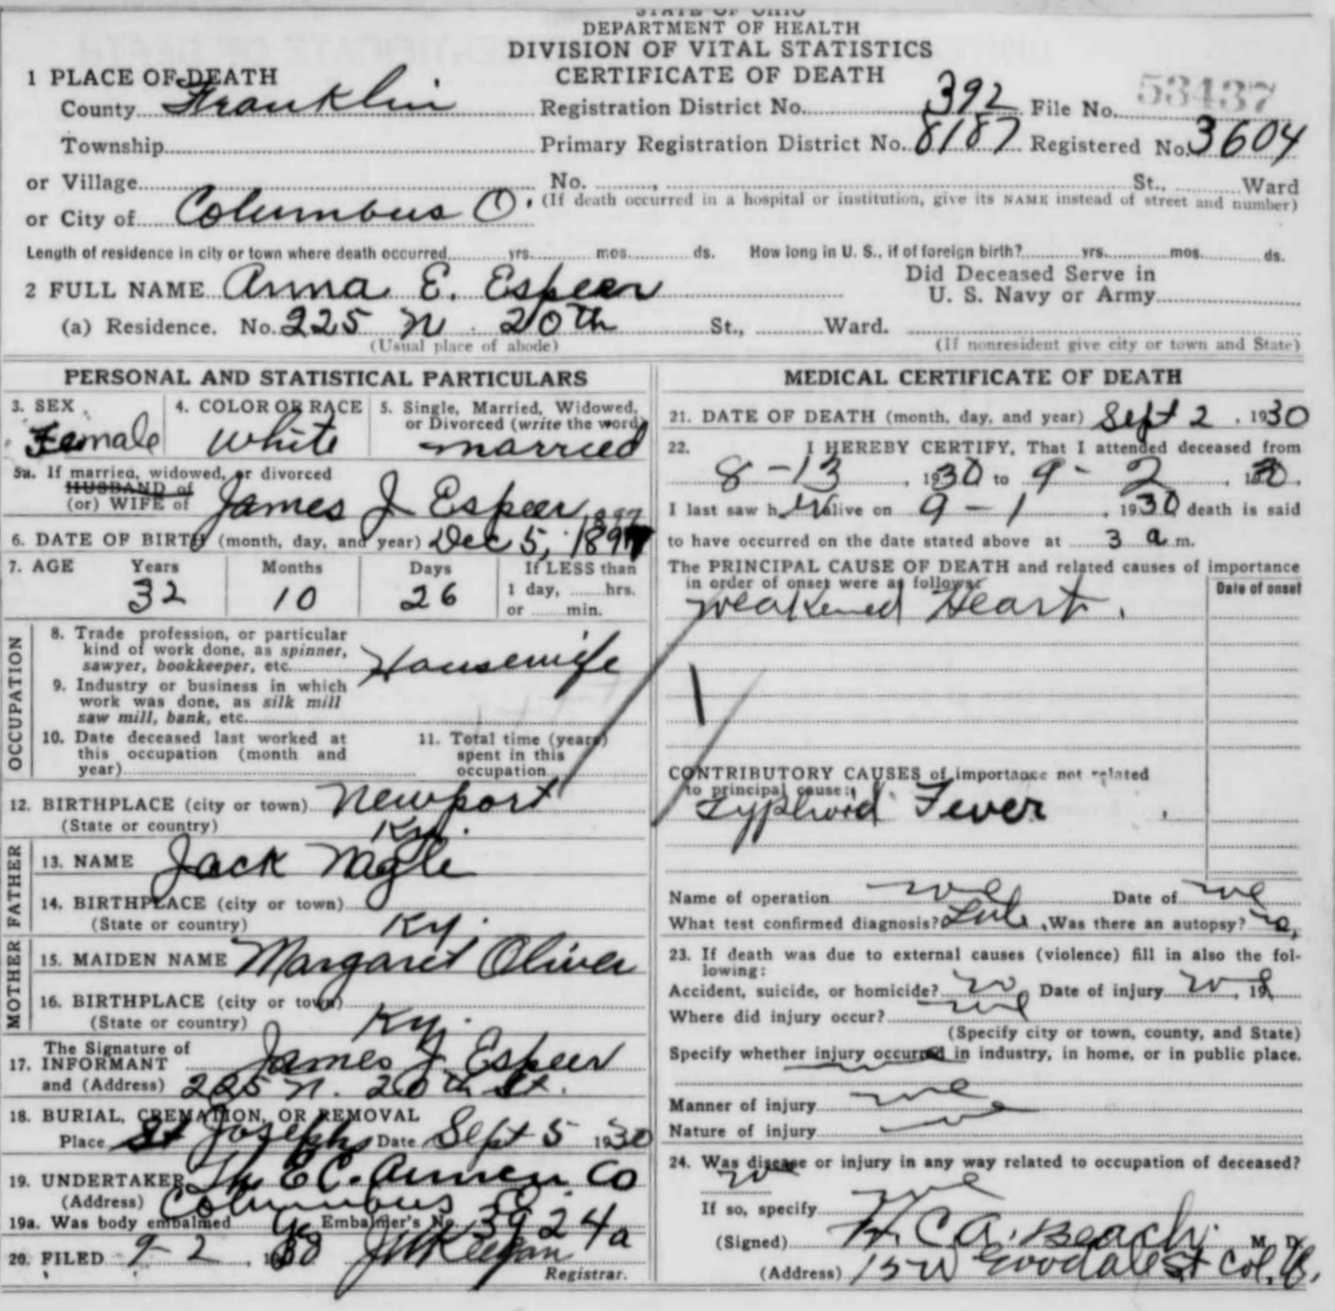 STATE OF OHIO
DEPARTMENT OF HEALTH
DIVISION OF VITAL STATISTICS
CERTIFICATE OF DEATH
1 PLACE OF DEATH
County Franklin Registration District No. 392 File No. 53437
Township Primary Registration District No. 8187 Registered No. 3604
or Village No. , St., Ward
or City of Columbus O. (If death occurred in a hospital or institution, give its NAME instead of street and number)
Length of residence in city or town where death occurred yrs. mos. ds. How long in U. S., if of foreign birth? yrs. mos. ds.
2 FULL NAME Anna E. Espeer Did Deceased Serve in
U. S. Navy or Army
(a) Residence. No. 225 N. 20th St., Ward.
(Usual place of abode) (If nonresident give city or town and State)
PERSONAL AND STATISTICAL PARTICULARS
3. SEX 4. COLOR OR RACE 5. Single, Married, Widowed,
or Divorced (write the word)
Female white married
5a. If married, widowed, or divorced
HUSBAND of
(or) WIFE of James J Espeer
6. DATE OF BIRTH (month, day, and year) Dec 5, 1897
7. AGE Years Months Days If LESS than
1 day, hrs.
or min.
32 10 26
OCCUPATION
8. Trade profession, or particular
kind of work done, as spinner,
sawyer, bookkeeper, etc. Housewife
9. Industry or business in which
work was done, as silk mill
saw mill, bank, etc.
10. Date deceased last worked at
this occupation (month and
year)
11. Total time (years)
spent in this
occupation
12. BIRTHPLACE (city or town) Newport
(State or country) Ky.
FATHER
13. NAME Jack Nagle
14. BIRTHPLACE (city or town)
(State or country) Ky.
MOTHER
15. MAIDEN NAME Margaret Oliver
16. BIRTHPLACE (city or town)
(State or country) Ky.
The Signature of
17. INFORMANT James J Espeer
and (Address) 225 N. 20th St.
18. BURIAL, CREMATION, OR REMOVAL
Place St Josephs Date Sept 5 1930
19. UNDERTAKER The E C. Co
(Address) Columbus O.
19a. Was body embalmed Embalmer's No. 3924a
20. FILED 9-2, 1930 Keegan
Registrar.
MEDICAL CERTIFICATE OF DEATH
21. DATE OF DEATH (month, day, and year) Sept 2, 1930
22. I HEREBY CERTIFY, That I attended deceased from
8-13, 1930 to 9-2, 1930.
I last saw her alive on 9-1, 1930 death is said
to have occurred on the date stated above at 3 a.m.
The PRINCIPAL CAUSE OF DEATH and related causes of importance
in order of onset were as follows: Date of onset
Weakened Heart.
CONTRIBUTORY CAUSES of importance not related
to principal cause:
Typhoid Fever
Name of operation Date of
What test confirmed diagnosis? Was there an autopsy? no,
23. If death was due to external causes (violence) fill in also the fol-
lowing:
Accident, suicide, or homicide? no Date of injury 19
Where did injury occur?
(Specify city or town, county, and State)
Specify whether injury occurred in industry, in home, or in public place.
Manner of injury
Nature of injury
24. Was disease or injury in any way related to occupation of deceased?
no
If so, specify
(Signed) H. C. A. Beach M. D.
(Address) 15 W Goodale St Col, O.